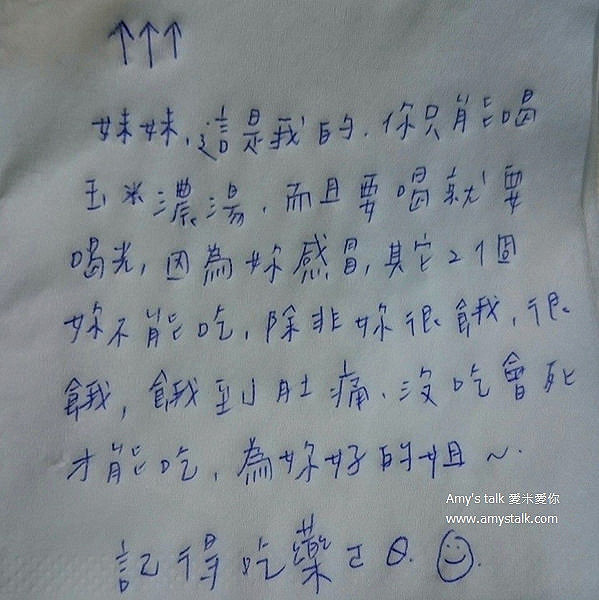 ↑↑↑
妹妹,這是我的.你只能喝
玉米濃湯.而且要喝就要
喝光,因為妳感冒,其它2個
妳不能吃,除非妳很餓,很
餓,餓到肚痛、沒吃會死
才能吃,為妳好的姐~.
Amy's talk 愛米愛你
www.amystalk.com
記得吃藥